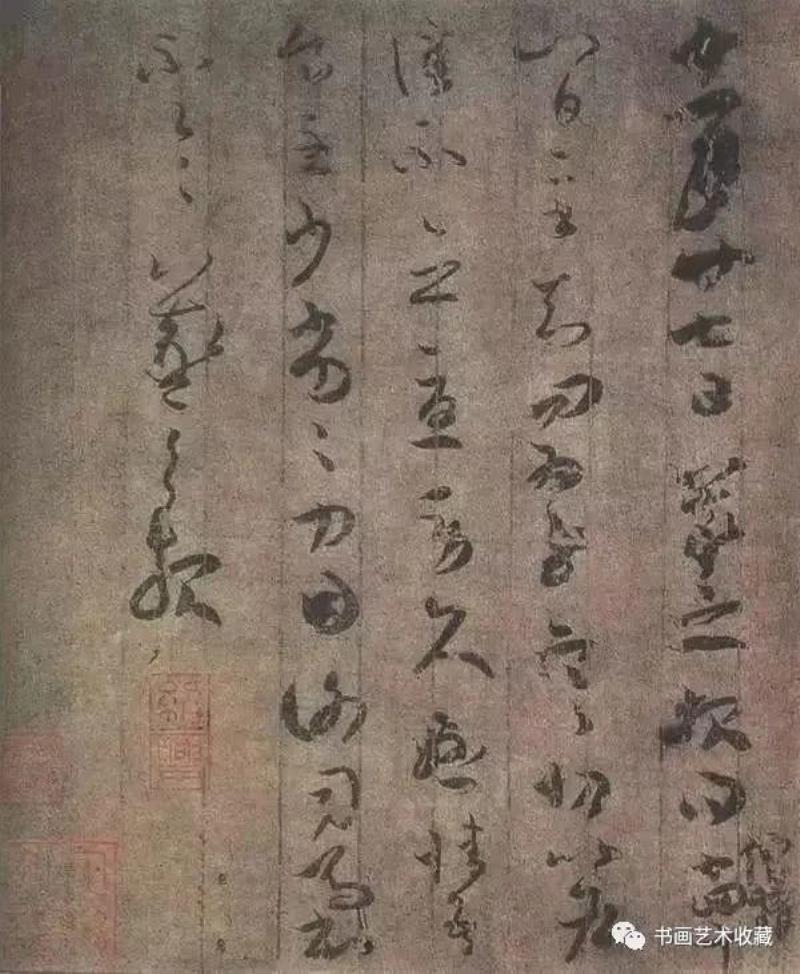 十一月廿七日羲之報得十四十
八日二書知問為慰寒切比各
佳不念憂勞久懸情吾
食至少劣〻力因謝司馬書
不一〻羲之報
僧權
紹興
书画艺术收藏